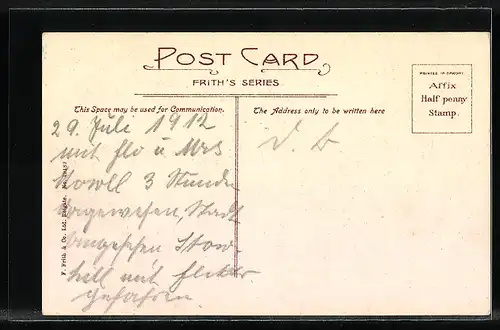 POST CARD
FRITH'S SERIES
PRINTED IN SAXONY
Affix
Half penny
Stamp.
This Space may be used for Communication.
The Address only to be written here
29. Juli 1912
mit Flo u Mrs
3 Stunde
Stadt
angesehen Stow-
hill mit
gefahren.
F. Frith & Co. Ltd. Reigate.